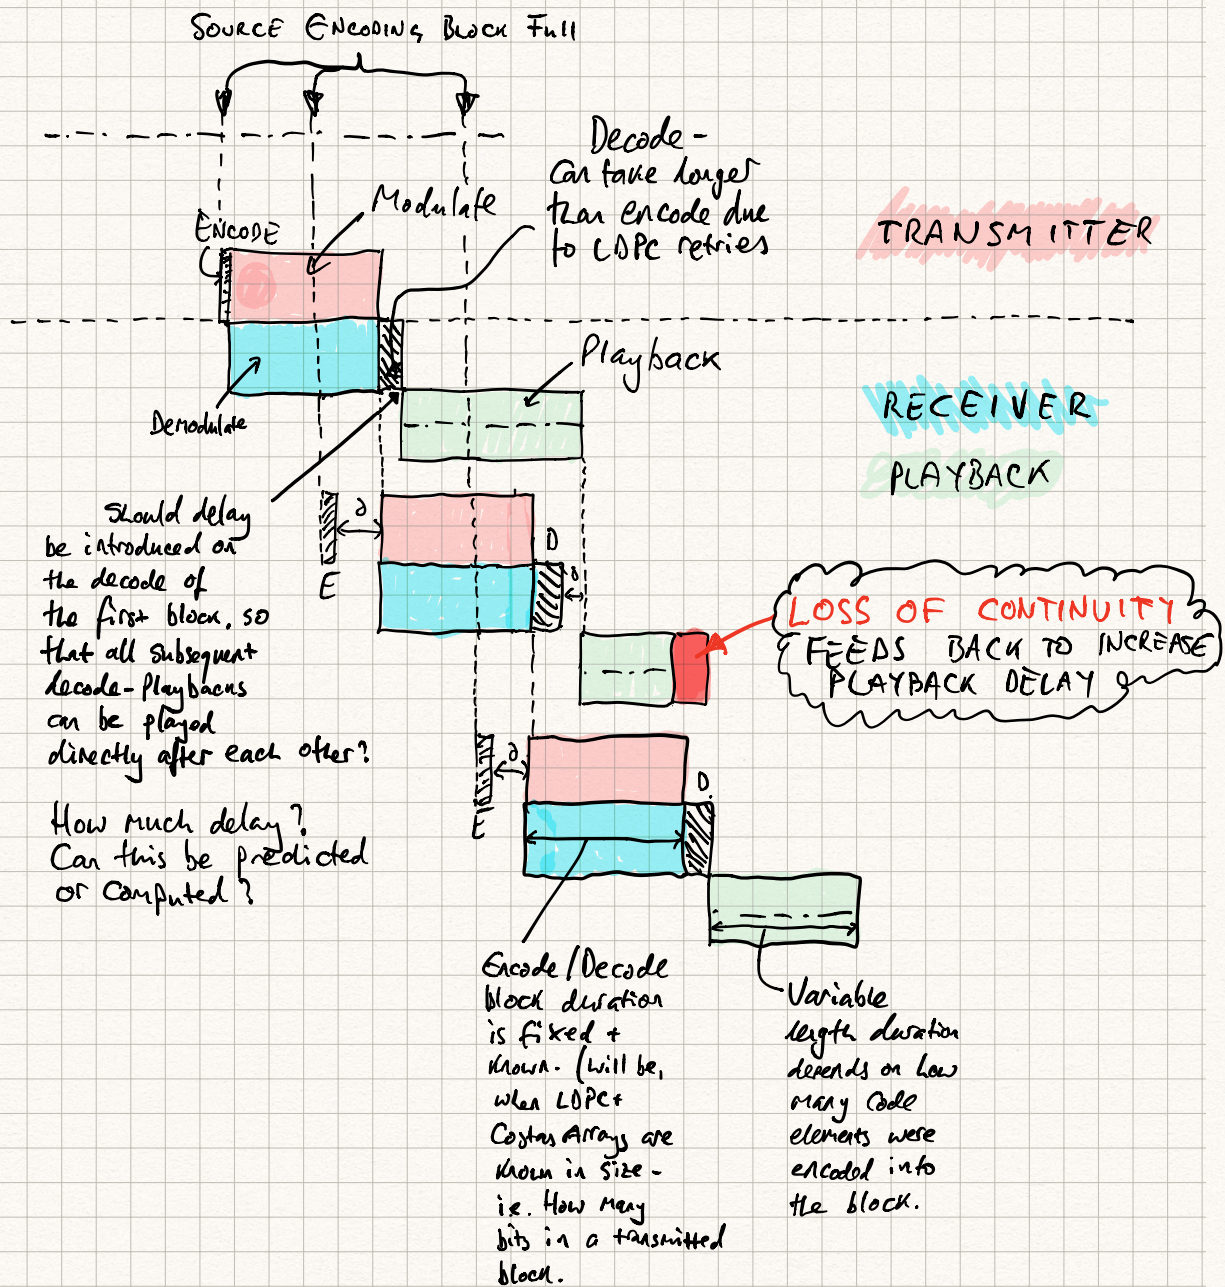 SOURCE ENCODING BLOCK FULL
Decode -
Can take longer
than encode due
to LDPC retries
Modulate
ENCODE
TRANSMITTER
Playback
Demodulate
RECEIVER
PLAYBACK
Should delay
be introduced on
the decode of
the first block, so
that all subsequent
decode-playbacks
can be played
directly after each other?
How much delay?
Can this be predicted
or computed?
∂
E
D
∂
LOSS OF CONTINUITY
FEEDS BACK TO INCREASE
PLAYBACK DELAY
∂
E
D
Encode/Decode
block duration
is fixed +
known. (will be,
when LDPC +
Costas Arrays are
known in size -
i.e. How many
bits in a transmitted
block.
Variable
length duration
depends on how
many code
elements were
encoded into
the block.